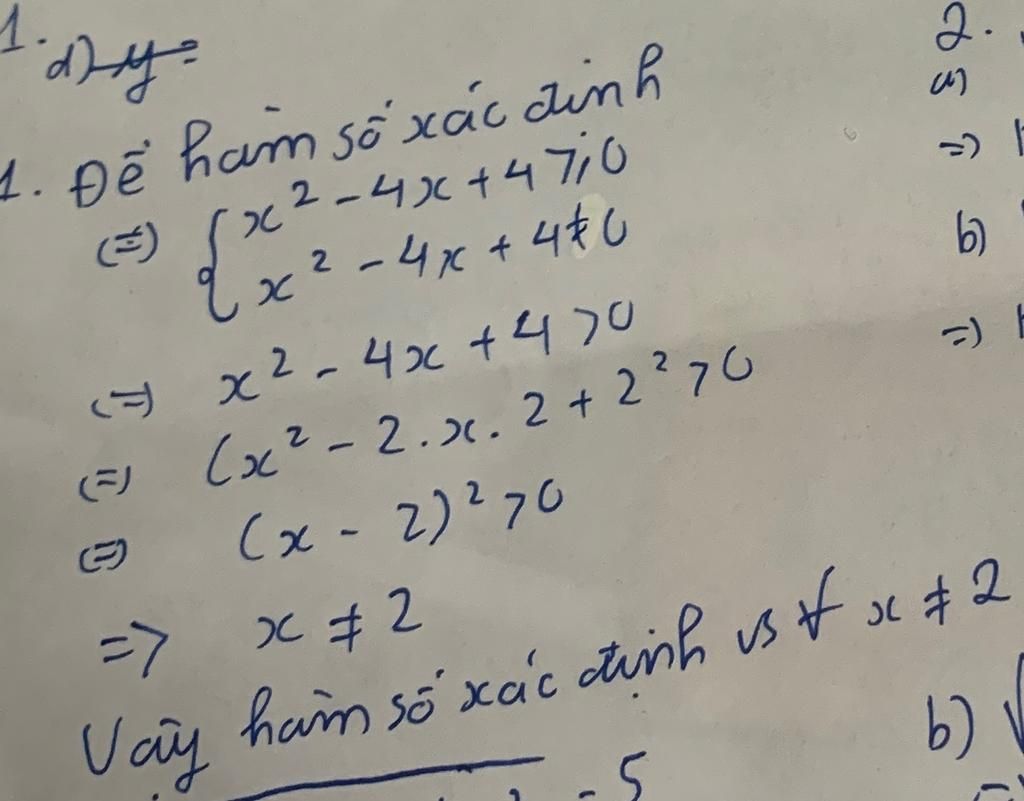 1.
d) y =
1. Để hàm số xác định
(=) { x² - 4x + 4 ⩾ 0
x² - 4x + 4 ≠ 0
(=) x² - 4x + 4 > 0
(=) (x² - 2.x.2 + 2² > 0
(=) (x - 2)² > 0
=> x ≠ 2
Vậy hàm số xác định vs ∀ x ≠ 2
- 5
2.
a)
=>
b)
=>
b) √